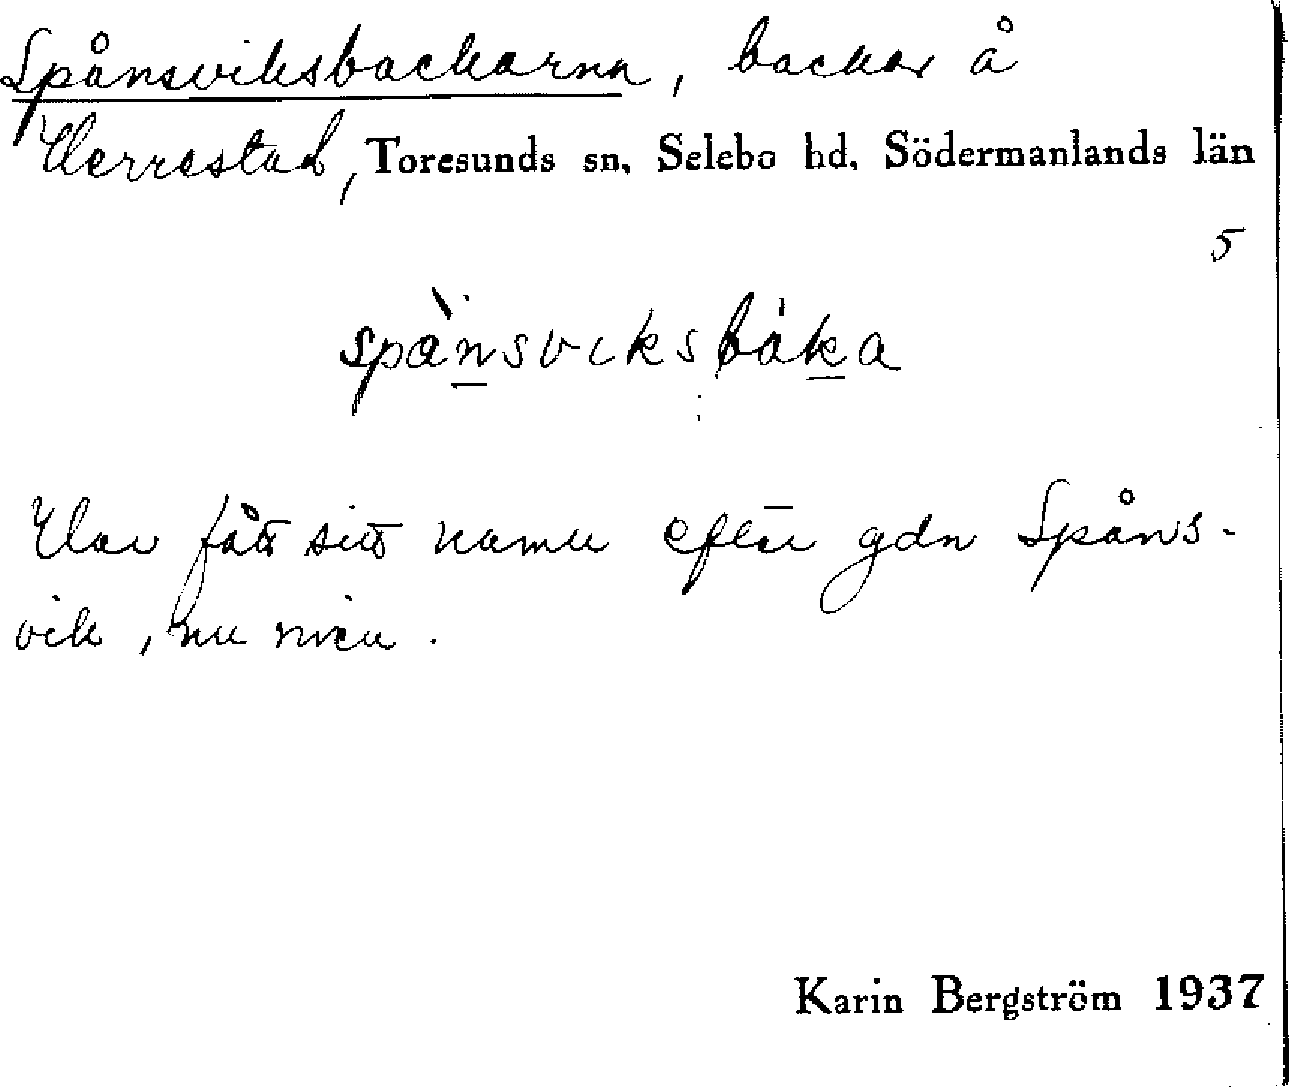 Spånsviksbackarna, backar å
Herrestad, Toresunds sn, Selebo hd, Södermanlands län
5
spànsviksbáka
Har fått sitt namn efter gdn Spåns-
vik, nu riven.
Karin Bergström 1937